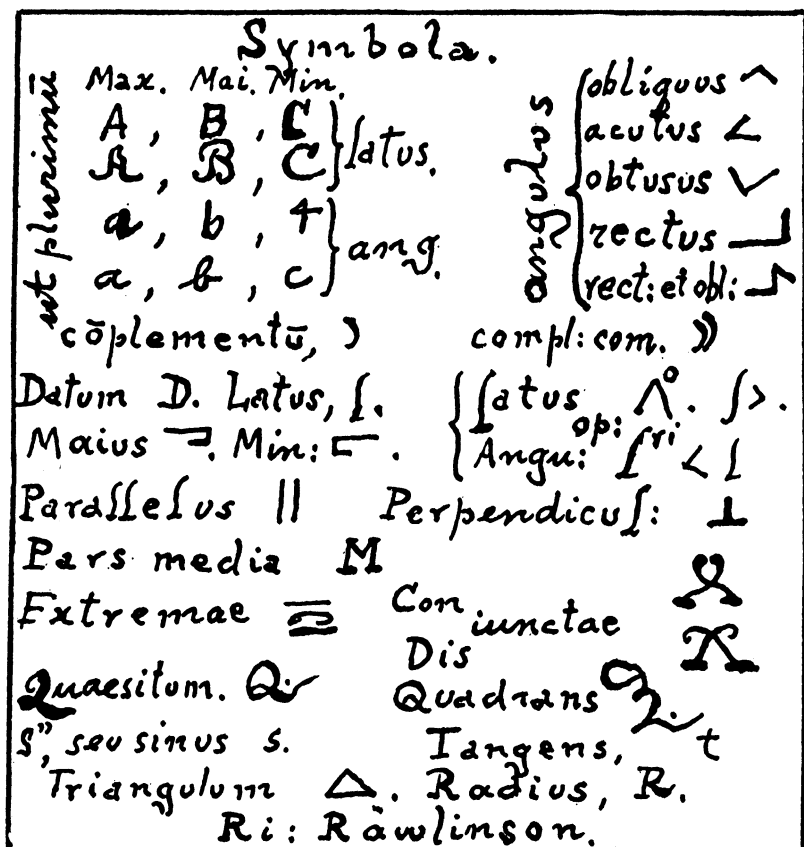 Symbola.
ut plurimū
Max. Mai. Min.
A, B, C
A, B, C } latus.
a, b, 4
a, b, c } ang.
angulus
obliquus ^
acutus ∠
obtusus ∨
rectus ┘
rect: et obl:
cōplementū, )
compl: com. ))
Datum D. Latus, ʃ.
Maius ⊐. Min: ⊏.
latus op: Λ°. ʃ>.
Angu: ʃri < ʃ
Parallelus ||
Perpendicul: ⊥
Pars media M
Extremae
Con
Dis iunctae
Quaesitum. Q.
Quadrans Q.
s'', seu sinus s.
Tangens, t
Triangulum △. Radius, R.
Ri: Rawlinson.